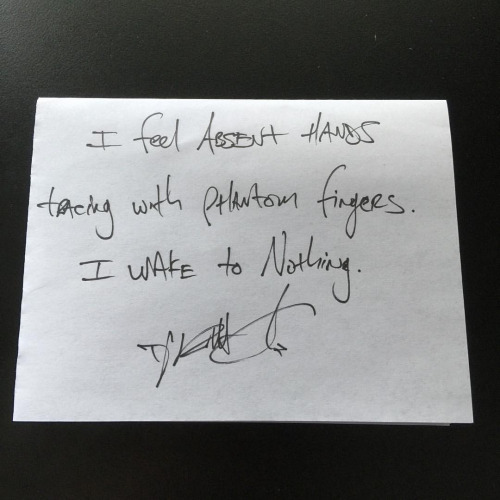 I feel ABSENT HANDS
tracing with phantom fingers.
I WAKE to Nothing.